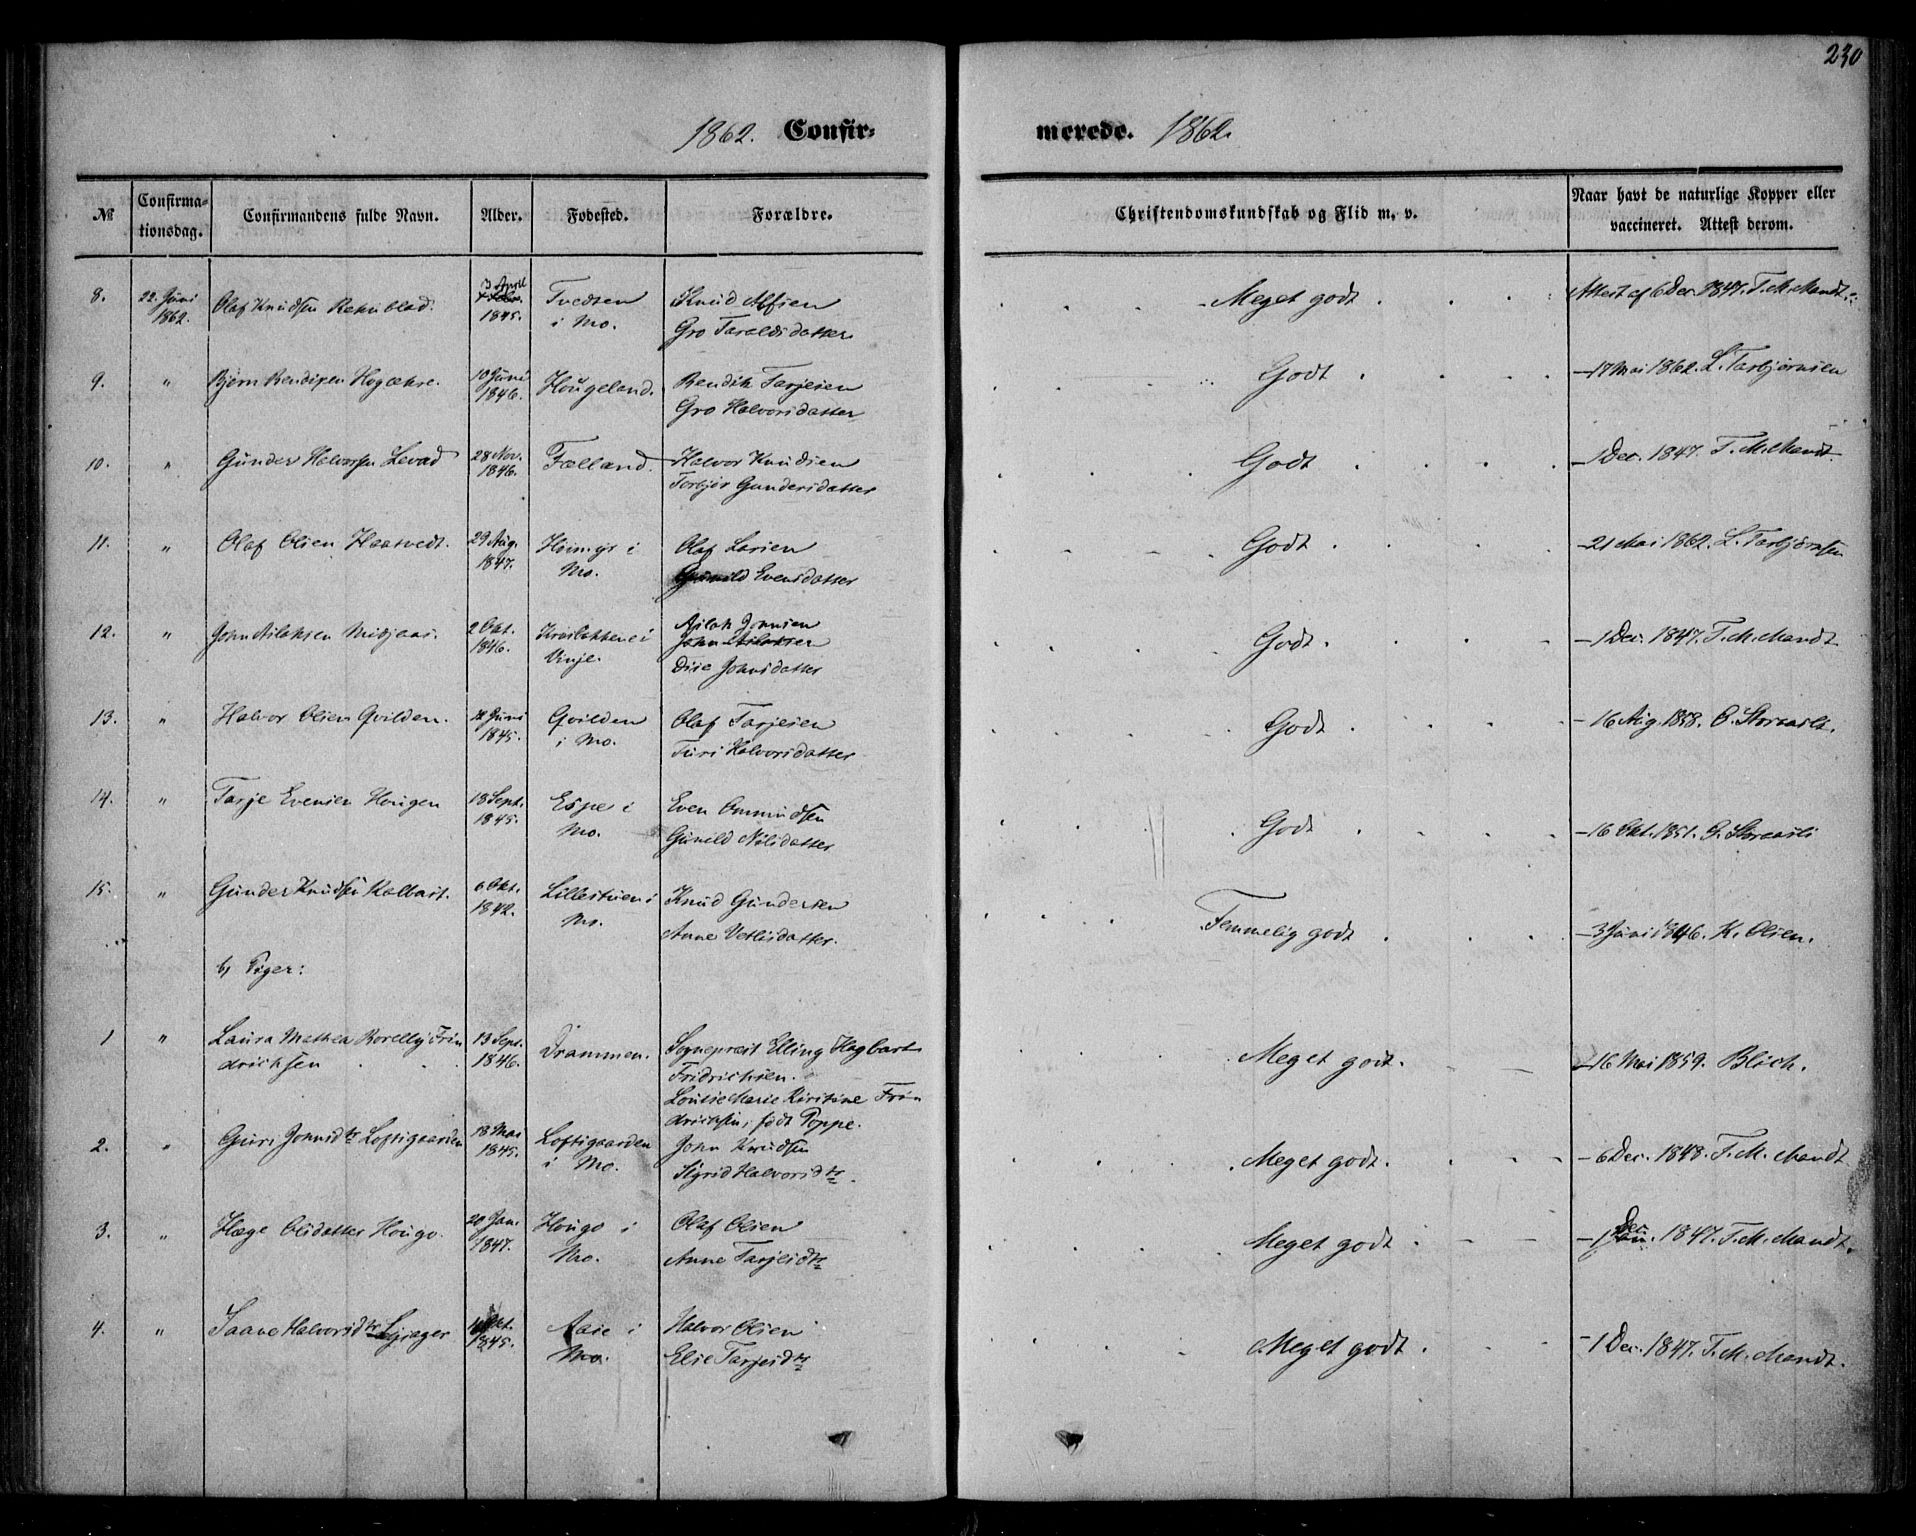 230
1862. Confir- merede. 1862.
No
Confirma-
tionsdag.
Confirmandens fulde Navn.
Alder.
Fødested.
Forældre.
Christendomskundskab og Flid m. v.
Naar havt de naturlige Kopper eller
vaccineret. Attest derom.
8. 22. Juni 1862. Olaf Knudsen 3 April 1845. Tvedten i Mo. Knud Alfsen
Gro Taraldsdatter
Meget godt Attest af 6 Dec. 1847. T. M. Mandt.
9. " Bjørn Bendixen 10 Juni 1846. Hougeland. Bendik Tarjeien
Gro Halvorsdatter
Godt — 17 Mai 1862. L. Tarbjørnsen
10. " Gunder Halvorsen Levad 28 Nov. 1846. Fælland. Halvor Knudsen
Torbjør Gundersdatter
Godt — 1 Dec. 1847. T. M. Mandt.
11. " Olaf Olsen Haatvedt. 29 Aug. 1847. i Mo. Olaf
Gunild Evensdatter
Godt — 21 Mai 1862. L. Tarbjørnsen
12. " John Aslaksen 2 Okt. 1846. i Vinje. Aslak Jonsen
John Aslaksen
Dise Johnsdatter
Godt. — 1 Dec. 1847. T. M. Mandt
13. " Halvor Olsen Qvilden. Juni 1845. Qvilden i Mo. Olaf Tarjesen
Turi Halvorsdatter
Godt — 16 Aug. 1858. Storaasli.
14. " Tarje Evensen Hougen 18 Sept. 1845. Espe i Mo. Even Ommundsen
Gunild Nilsdatter
Godt — 16 Okt. 1851. Storaasli
15. " Gunder Knudsen 6 Okt. 1842. Lillestuen i Mo. Knud Gundersen
Anne Vetlisdatter.
Temmelig godt — 3 Juni 1846. K. Olsen.
b, Piger:
1 " Laura Mathea Borelly Fri
drichsen
13 Sept. 1846. Drammen. Sogneprest Elling Hagbart
Fridrichsen.
Louise Marie Kirstine Fri
drichsen, født Poppe.
Meget godt. — 16 Mai 1859. Block.
2. " Guri Johnsdtr Loftsgaarden 18 Mai 1845. Loftsgaarden i Mo. John Knudsen
Sigrid Halvorsdtr.
Meget godt. — 6 Dec. 1848. T. M. Mandt
3. " Hæge Olsdatter Hougo. 20 Jan. 1847. Hougo i Mo. Olaf Olsen
Anne Tarjeisdtr
Meget godt — 1 Dec. 1847. T. M. Mandt.
4. " Saave Halvorsdtr Okt. 1845. Aase i Mo. Halvor Olsen
Elsie Tarjeisdtr
Meget godt — 1 Dec. 1847. T. M. Mandt.